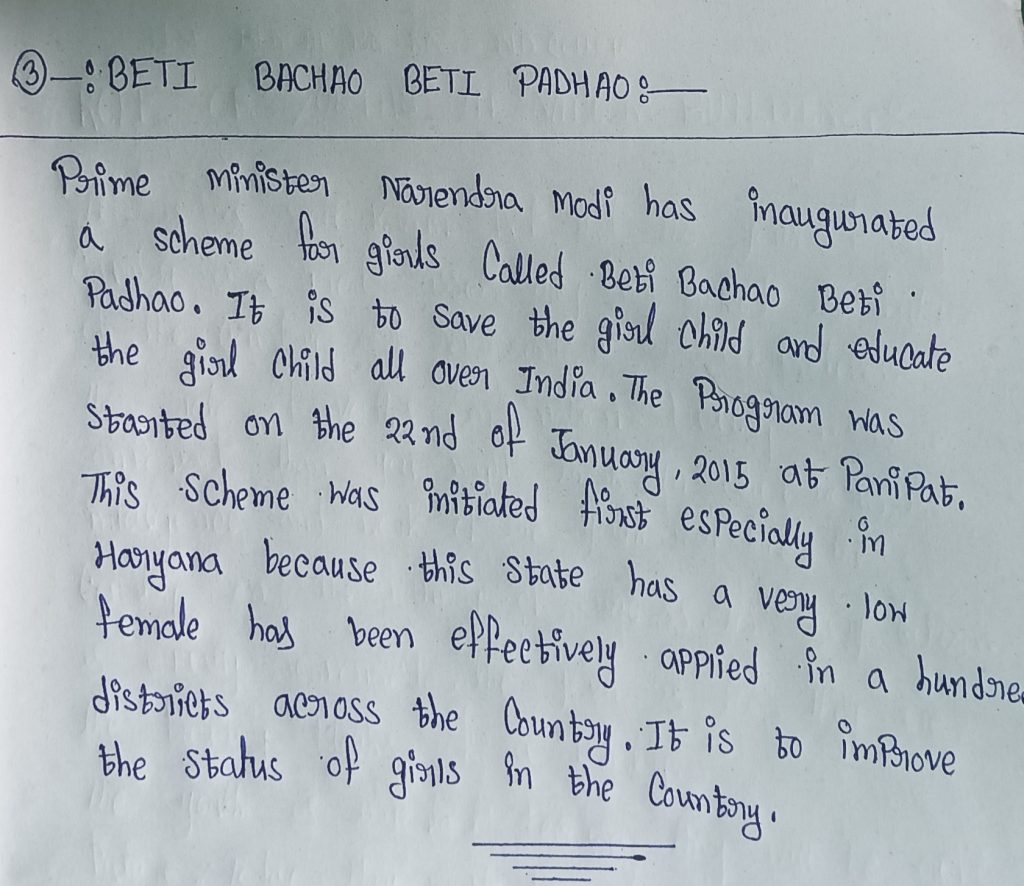 ③—: BETI BACHAO BETI PADHAO :—
Prime minister Narendra modi has inaugurated
a scheme for girls Called Beti Bachao Beti
Padhao. It is to Save the girl child and educate
the girl child all over India. The Program was
Started on the 22nd of January, 2015 at PaniPat.
This Scheme was initiated first especially in
Haryana because this State has a very low
female has been effectively applied in a hundred
districts across the Country. It is to imProve
the Status of girls in the Country.